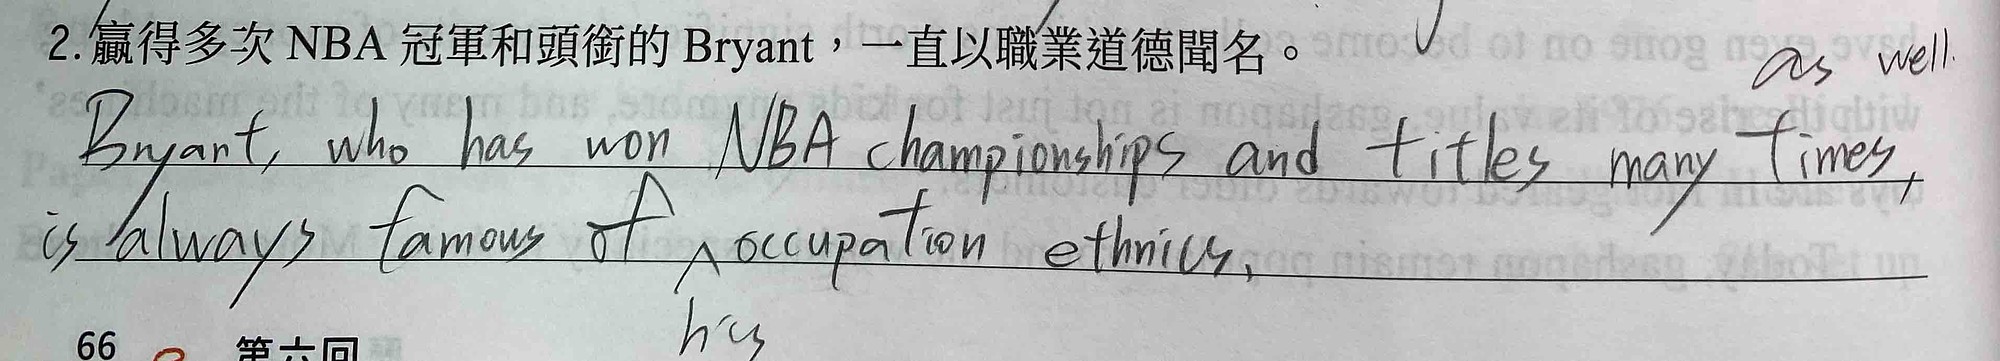 2. 贏得多次 NBA 冠軍和頭銜的 Bryant，一直以職業道德聞名。
as well.
Bryant, who has won NBA championships and titles many times,
is always famous of ^ occupation ethnics.
his
66 第六回